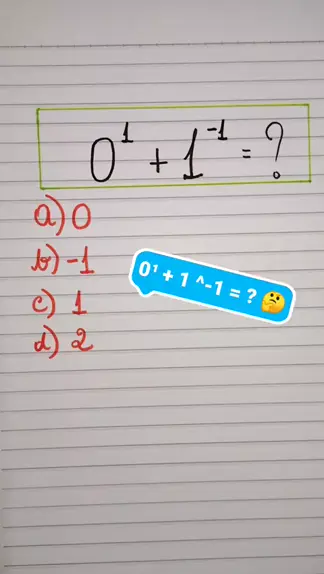 0¹ + 1⁻¹ = ?
a) 0
b) -1
0¹ + 1 ^-1 = ? 🤔
c) 1
d) 2